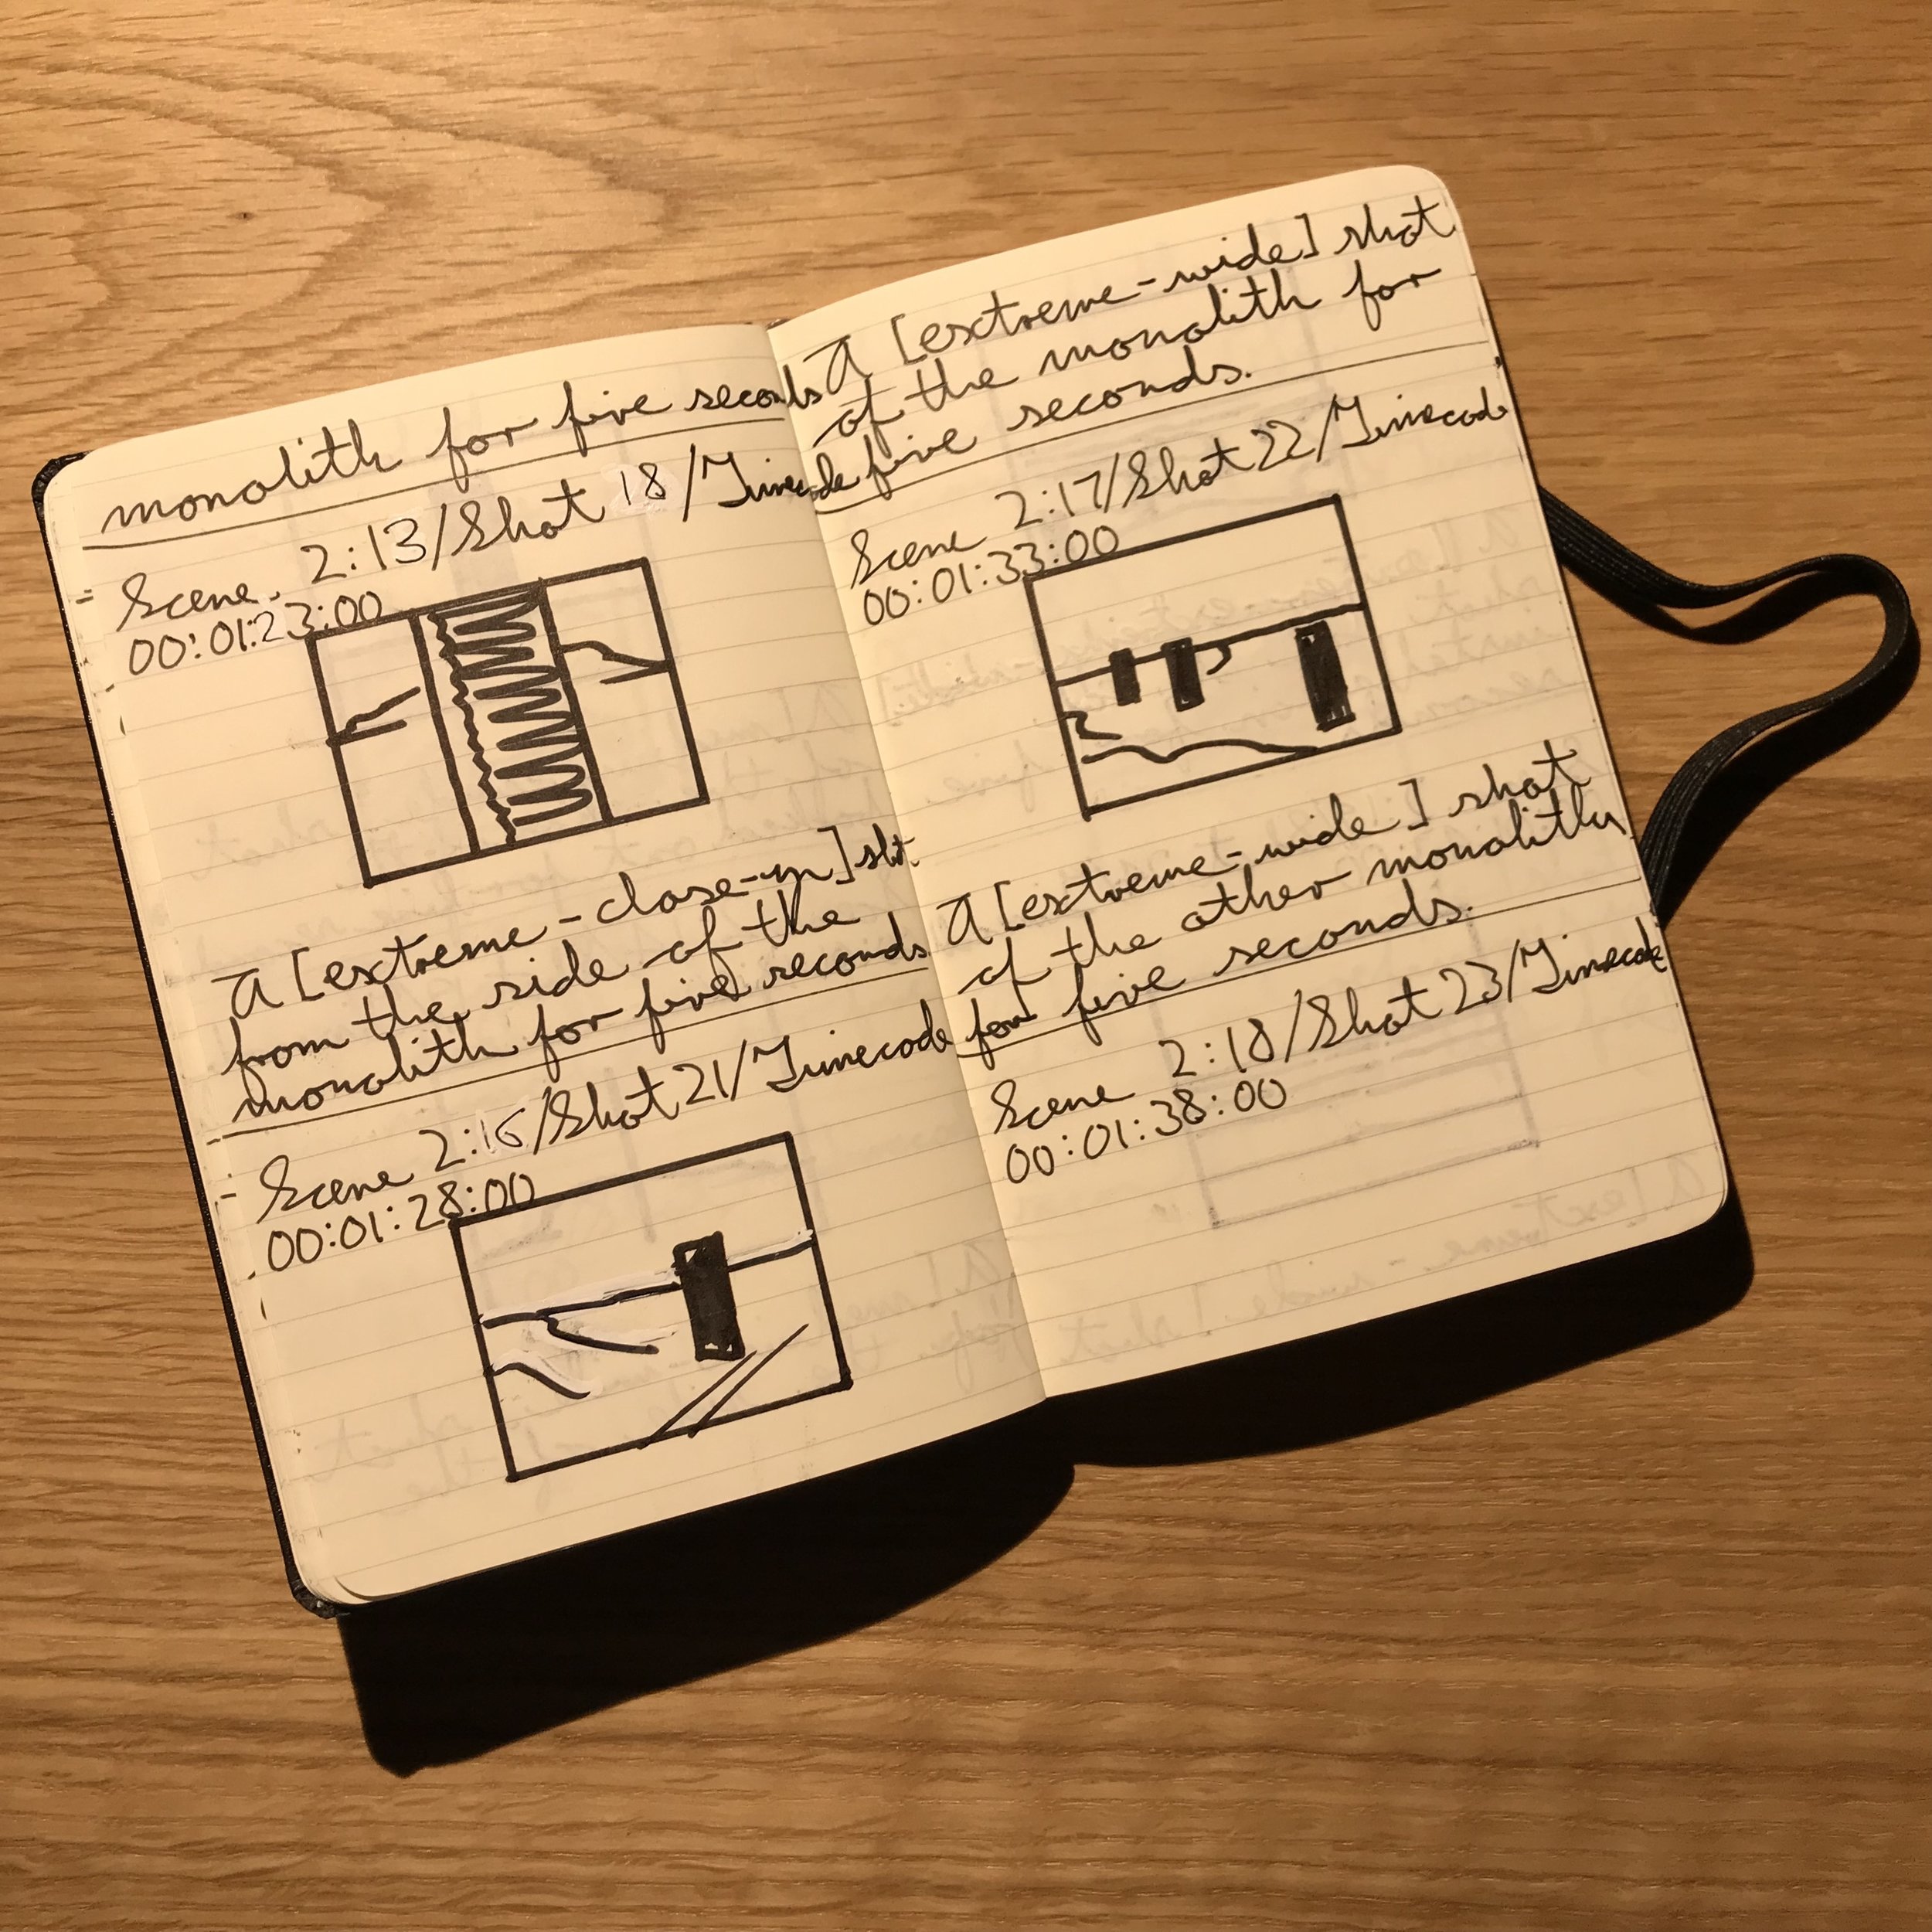 monolith for five seconds
Scene 2:13/Shot 18/Timecode
00:01:23:00
A [extreme-close-up] sht
from the side of the
monolith for five seconds
Scene 2:16/Shot 21/Timecode
00:01:28:00
A [extreme-wide] shot
of the monolith for
five seconds.
Scene 2:17/Shot 22/Timecode
00:01:33:00
A [extreme-wide] shot
of the other monoliths
for five seconds.
Scene 2:18/Shot 23/Timecode
00:01:38:00